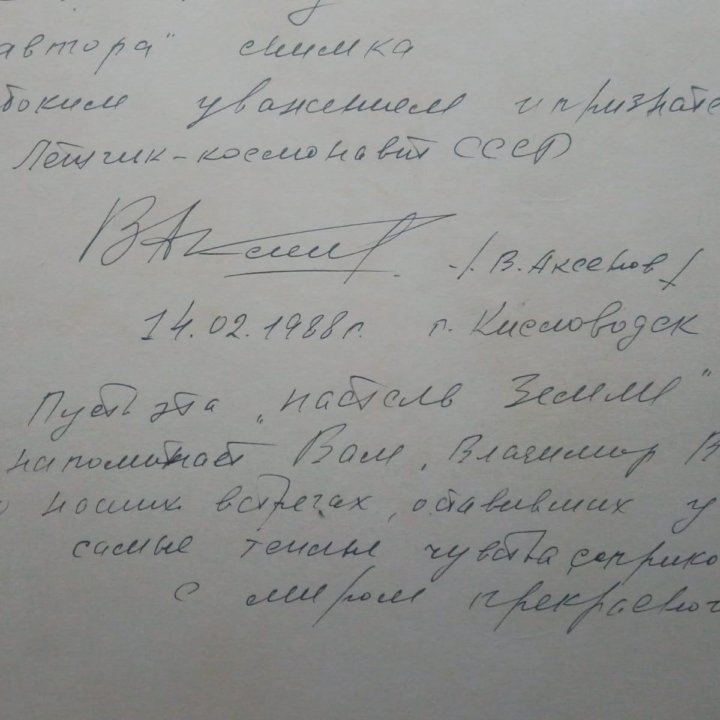 автора" снимка
боким уважением и признате
Лётчик-космонавт СССР
/В. Аксенов/
14.02.1988г. г. Кисловодск
Пусть эта „пастель Земли"
напоминает Вам, Владимир В
о наших встречах, оставивших у
самые теплые чувства соприко
с миром прекрасного